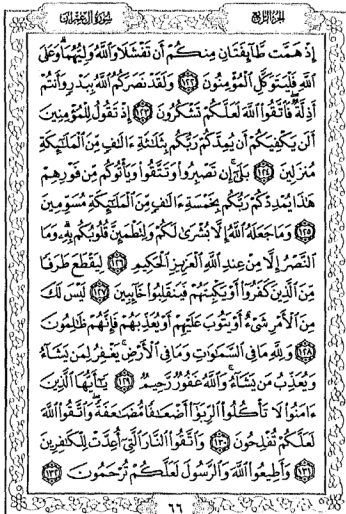 الجزء الرابع سورة آل عمران
إِذْ هَمَّت طَّآئِفَتَانِ مِنكُمْ أَن تَفْشَلَا وَٱللَّهُ وَلِيُّهُمَا ۗ وَعَلَى
ٱللَّهِ فَلْيَتَوَكَّلِ ٱلْمُؤْمِنُونَ ١٢٢ وَلَقَدْ نَصَرَكُمُ ٱللَّهُ بِبَدْرٍ وَأَنتُمْ
أَذِلَّةٌ ۖ فَٱتَّقُوا۟ ٱللَّهَ لَعَلَّكُمْ تَشْكُرُونَ ١٢٣ إِذْ تَقُولُ لِلْمُؤْمِنِينَ
أَلَن يَكْفِيَكُمْ أَن يُمِدَّكُمْ رَبُّكُم بِثَلَٰثَةِ ءَالَٰفٍ مِّنَ ٱلْمَلَٰٓئِكَةِ
مُنزَلِينَ ١٢٤ بَلَىٰٓ ۚ إِن تَصْبِرُوا۟ وَتَتَّقُوا۟ وَيَأْتُوكُم مِّن فَوْرِهِمْ
هَٰذَا يُمْدِدْكُمْ رَبُّكُم بِخَمْسَةِ ءَالَٰفٍ مِّنَ ٱلْمَلَٰٓئِكَةِ مُسَوِّمِينَ
١٢٥ وَمَا جَعَلَهُ ٱللَّهُ إِلَّا بُشْرَىٰ لَكُمْ وَلِتَطْمَئِنَّ قُلُوبُكُم بِهِۦ ۗ وَمَا
ٱلنَّصْرُ إِلَّا مِنْ عِندِ ٱللَّهِ ٱلْعَزِيزِ ٱلْحَكِيمِ ١٢٦ لِيَقْطَعَ طَرَفًا
مِّنَ ٱلَّذِينَ كَفَرُوٓا۟ أَوْ يَكْبِتَهُمْ فَيَنقَلِبُوا۟ خَآئِبِينَ ١٢٧ لَيْسَ لَكَ
مِنَ ٱلْأَمْرِ شَىْءٌ أَوْ يَتُوبَ عَلَيْهِمْ أَوْ يُعَذِّبَهُمْ فَإِنَّهُمْ ظَٰلِمُونَ
١٢٨ وَلِلَّهِ مَا فِى ٱلسَّمَٰوَٰتِ وَمَا فِى ٱلْأَرْضِ ۚ يَغْفِرُ لِمَن يَشَآءُ
وَيُعَذِّبُ مَن يَشَآءُ ۚ وَٱللَّهُ غَفُورٌ رَّحِيمٌ ١٢٩ يَٰٓأَيُّهَا ٱلَّذِينَ
ءَامَنُوا۟ لَا تَأْكُلُوا۟ ٱلرِّبَوٰٓا۟ أَضْعَٰفًا مُّضَٰعَفَةً ۖ وَٱتَّقُوا۟ ٱللَّهَ
لَعَلَّكُمْ تُفْلِحُونَ ١٣٠ وَٱتَّقُوا۟ ٱلنَّارَ ٱلَّتِىٓ أُعِدَّتْ لِلْكَٰفِرِينَ
١٣١ وَأَطِيعُوا۟ ٱللَّهَ وَٱلرَّسُولَ لَعَلَّكُمْ تُرْحَمُونَ ١٣٢
٦٦